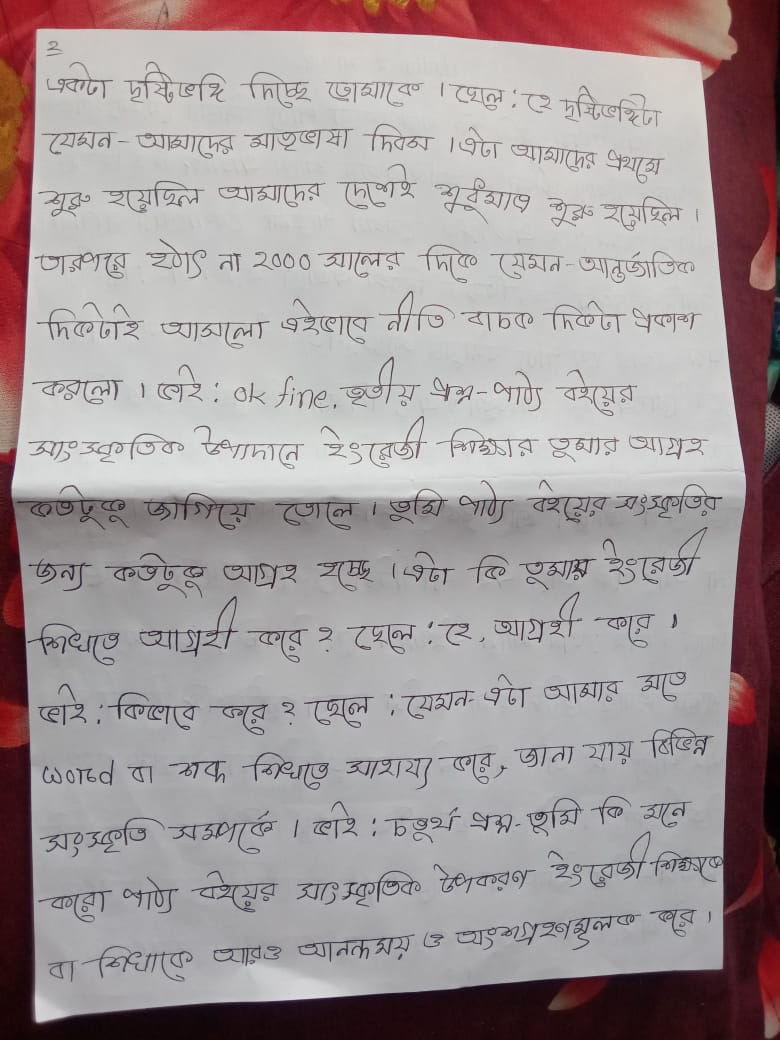 ২
একটা দৃষ্টিভঙ্গি দিচ্ছে তোমাকে । ছেলে : হে দৃষ্টিভঙ্গিটা
যেমন - আমাদের মাতৃভাষা দিবস । এটা আমাদের প্রথমে
শুরু হয়েছিল আমাদের দেশেই শুধুমাত্র শুরু হয়েছিল ।
তারপরে হঠাৎ না ২০০০ সালের দিকে যেমন - আন্তর্জাতিক
দিকটাই আসলো এইভাবে নীতি বাচক দিকটা প্রকাশ
করলো । ভাই : ok fine. তৃতীয় প্রশ্ন - পাঠ্য বইয়ের
সাংস্কৃতিক উপাদানে ইংরেজী শিক্ষার তুমার আগ্রহ
কতটুকু জাগিয়ে তোলে । তুমি পাঠ্য বইয়ের সংস্কৃতির
জন্য কতটুকু আগ্রহ হচ্ছে । এটা কি তুমায় ইংরেজী
শিখতে আগ্রহী করে ? ছেলে : হে, আগ্রহী করে ।
ভাই : কিভাবে করে ? ছেলে : যেমন - এটা আমার মতে
word বা শব্দ শিখতে সাহায্য করে, জানা যায় বিভিন্ন
সংস্কৃতি সম্পর্কে । ভাই : চতুর্থ প্রশ্ন - তুমি কি মনে
করো পাঠ্য বইয়ের সাংস্কৃতিক উপকরণ ইংরেজী শিক্ষাকে
বা শিখাকে আরও আনন্দময় ও অংশগ্রহণমূলক করে ।